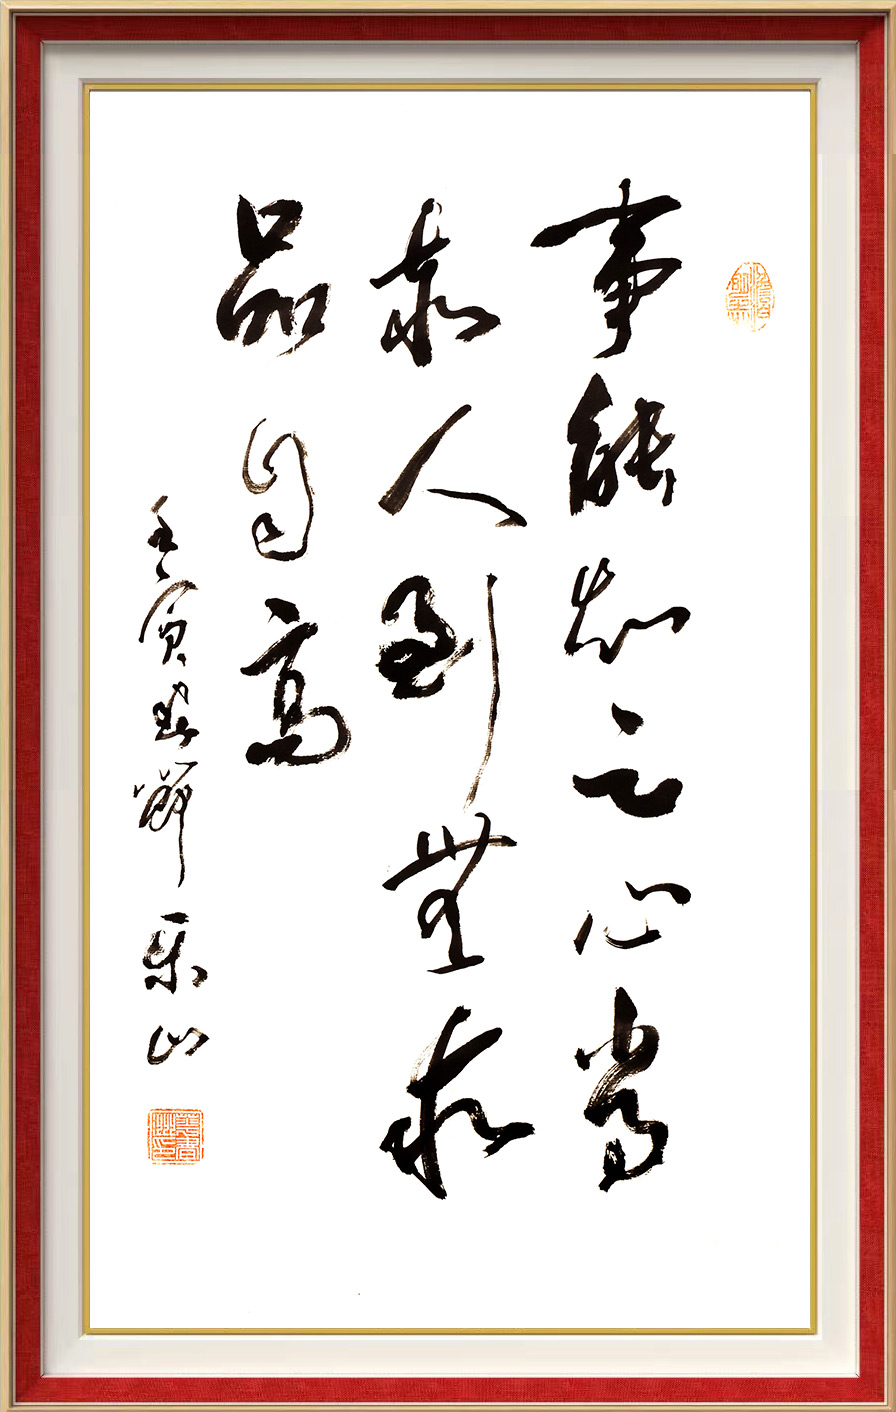 事能知足心常
泰人到無求
品自高
壬寅春節 乐山